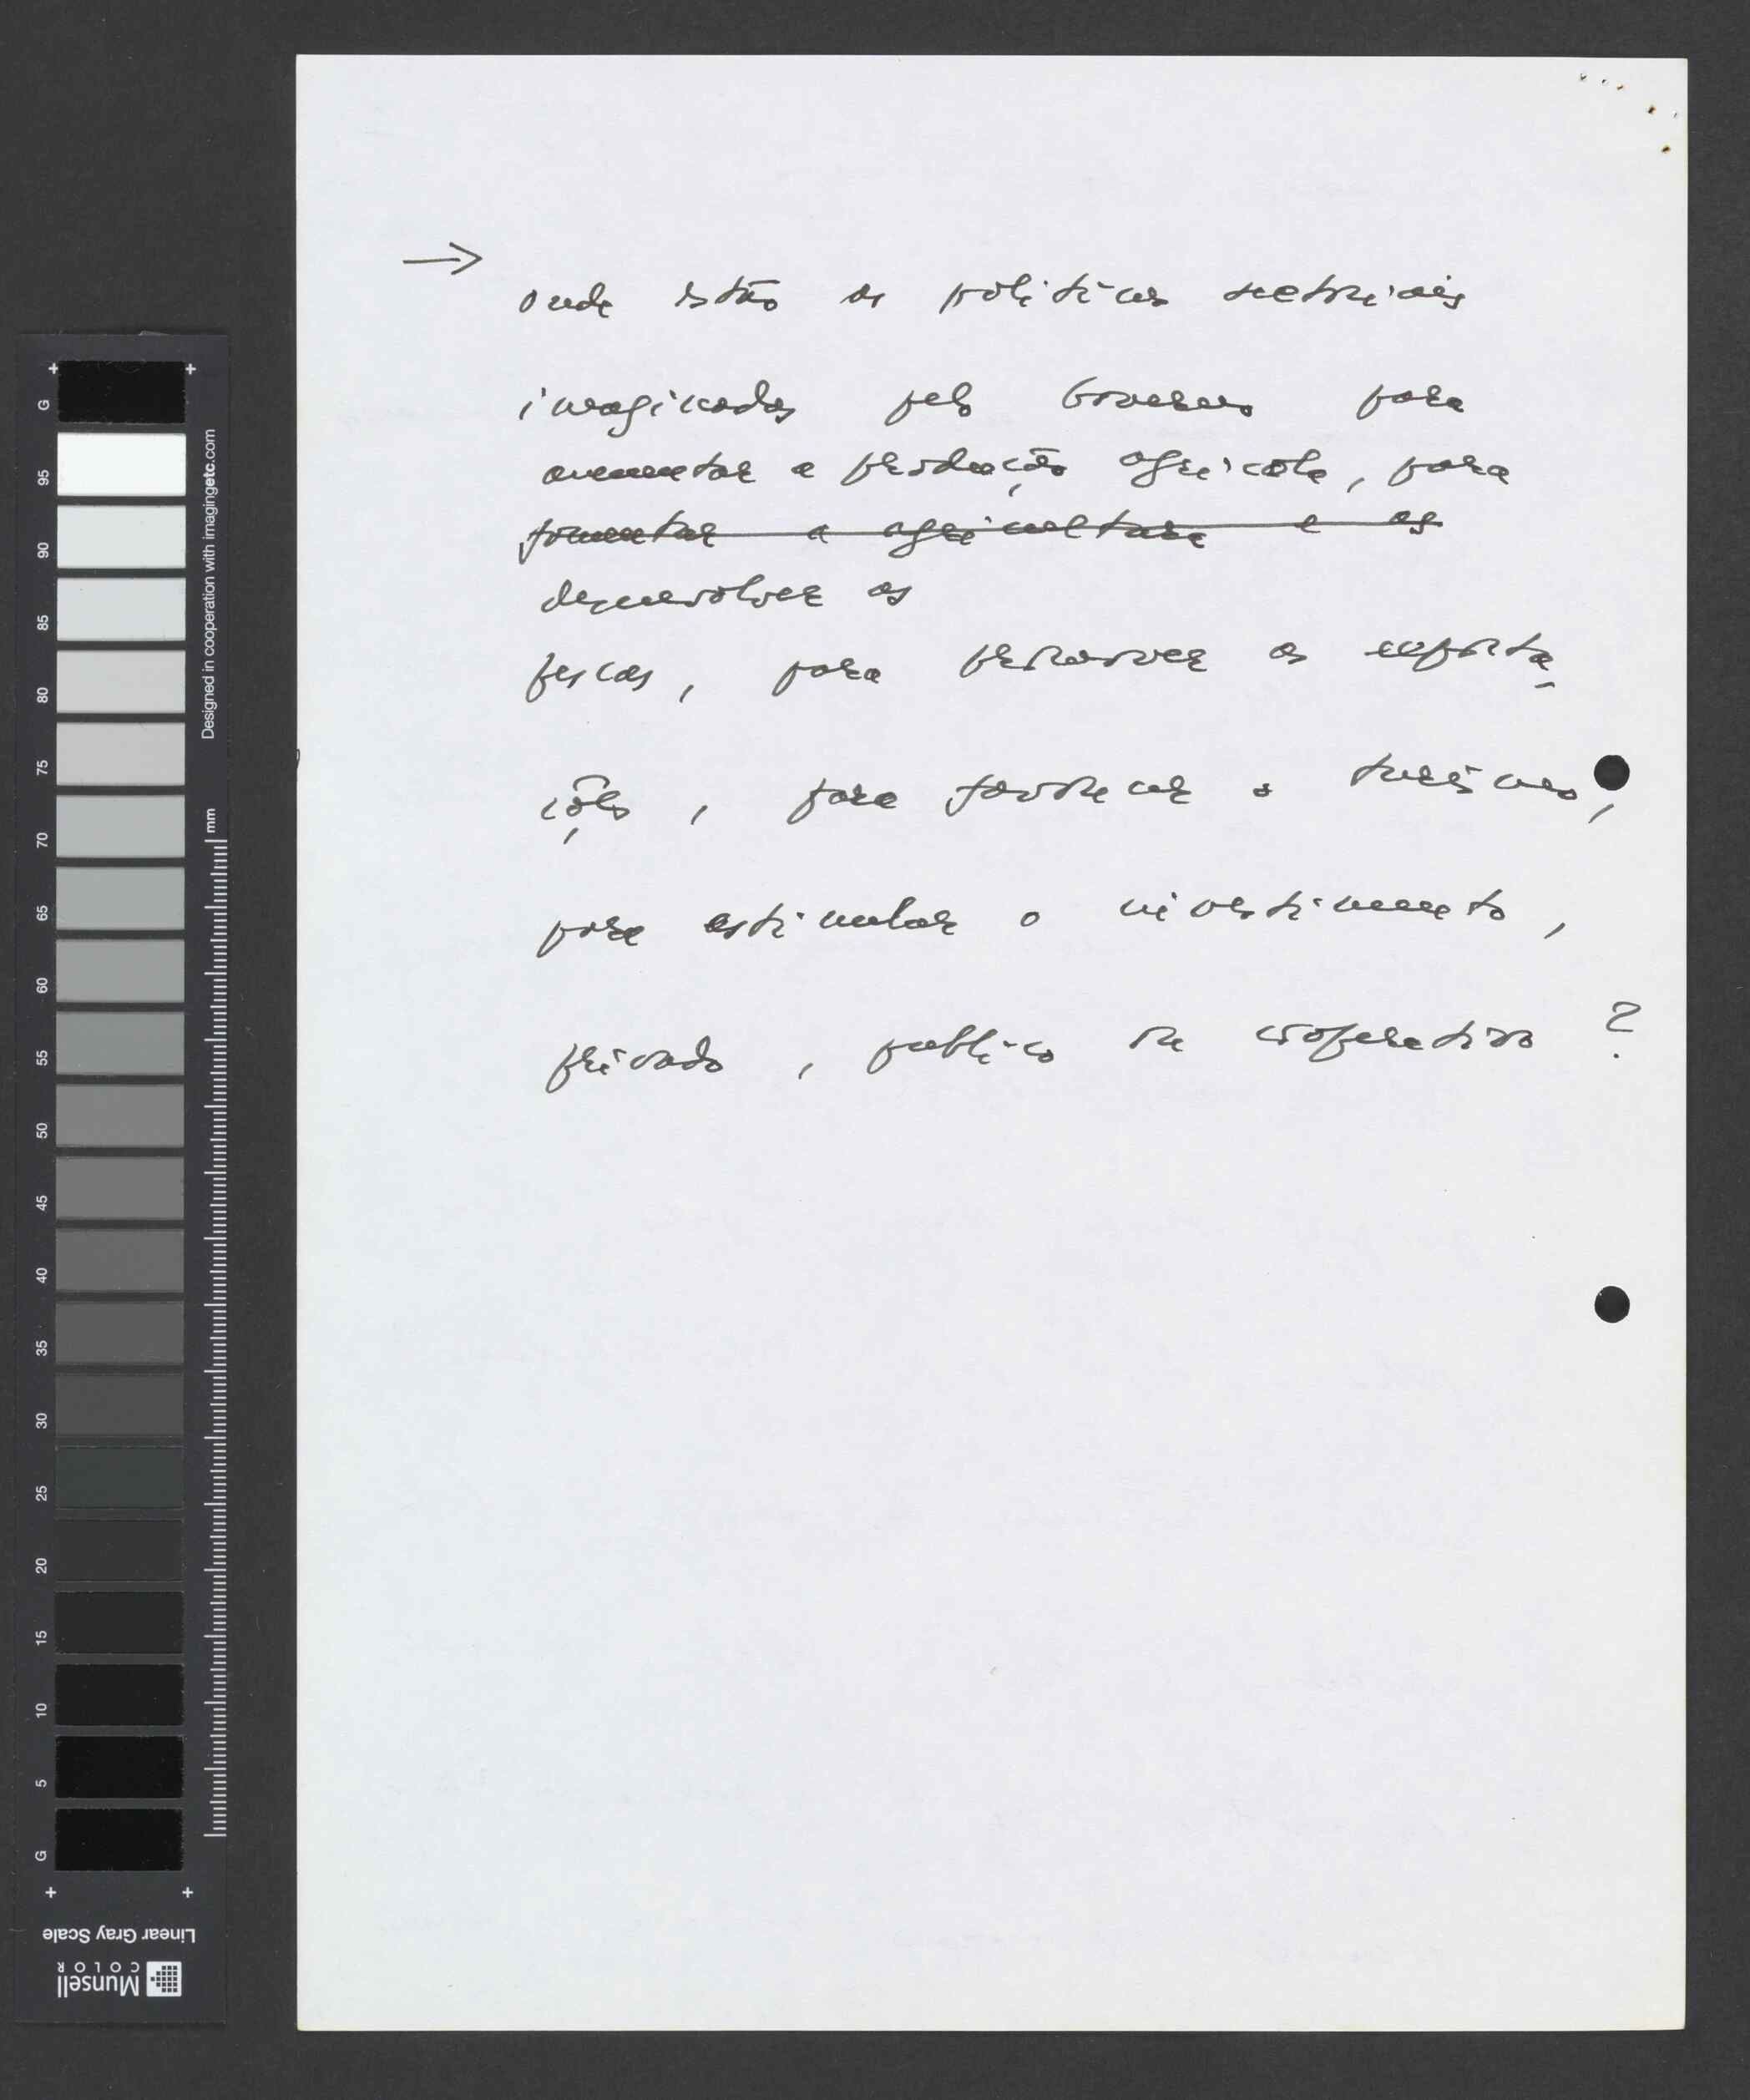 → onde estão as políticas sectoriais
imaginadas pelo Governo para
aumentar a produção agrícola, para
fomentar a agricultura e as
desenvolver as
pescas, para promover as exporta
ções, para favorecer o turismo,
para estimular o investimento,
privado, publico ou cooperativo ?
G 95 90 85 80 75 70 65 60 55 50 45 40 35 30 25 20 15 10 5 G
Designed in cooperation with imagingetc.com
mm
Linear Gray Scale
Munsell
COLOR